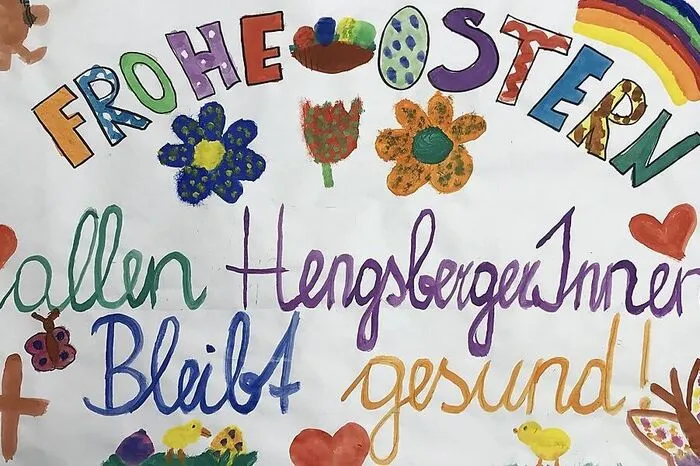 FROHE OSTERN
allen HengsbergerInnen
Bleibt gesund!